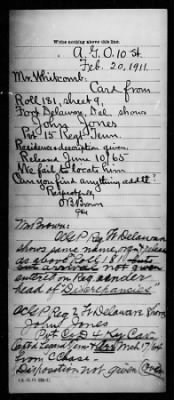 Write nothing above this line.
A.G.O. 10 St.
Feb. 20, 1911.
Mr. Whitcomb:
Card from
Roll 181, sheet 9,
Fort Delaware, Del. shows
John Jones
Pvt 15 Regt. Tenn.
Residence & description given.
Released June 10/65
We fail to locate him
Can you find anything addtl?
Respectfully
O B Brown
Mr. Brown:
Ft Delaware
shows same name,
as above Roll 181
not given
entered on Reg. under
head of "Discrepancies"
Ft Delaware Shows
John Jones
Pvt Co D 4 Ky Cav.
from
Disposition not given